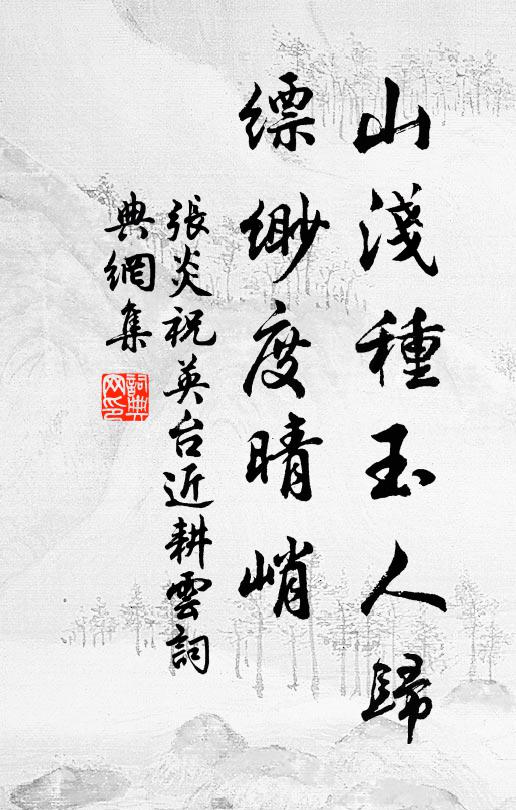 山淺種玉人歸
縹緲度晴峭
張炎祝英台近耕雲詞
典網集
詞典网印